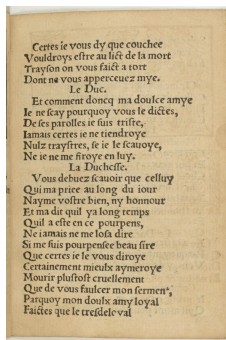 Certes ie vous dy que couchee
Vouldroys estre au lict de la mort
Trayson on vous faict a tort
Dont ne vous apperceuez mye.
Le Duc.
Et comment doncq ma doulce amye
Ie ne scay pourquoy vous le dictes,
De ses parolles ie suis triste,
Iamais certes ie ne tiendroye
Nulz traystres, se ie le scauoye,
Ne ie ne me firoye en luy.
La Duchesse.
Vous debuez scauoir que celluy
Qui ma priee au long du iour
Nayme vostre bien, ny honnour
Et ma dit quil ya long temps
Quil a este en ce pourpens,
Ne iamais ne me losa dire
Si me suis pourpensee beau sire
Que certes ie le vous diroye
Certainement mieulx aymeroye
Mourir plustost cruellement
Que de vous faulcer mon serment,
Parquoy mon doulx amy loyal
Faictes que le tresdesleval